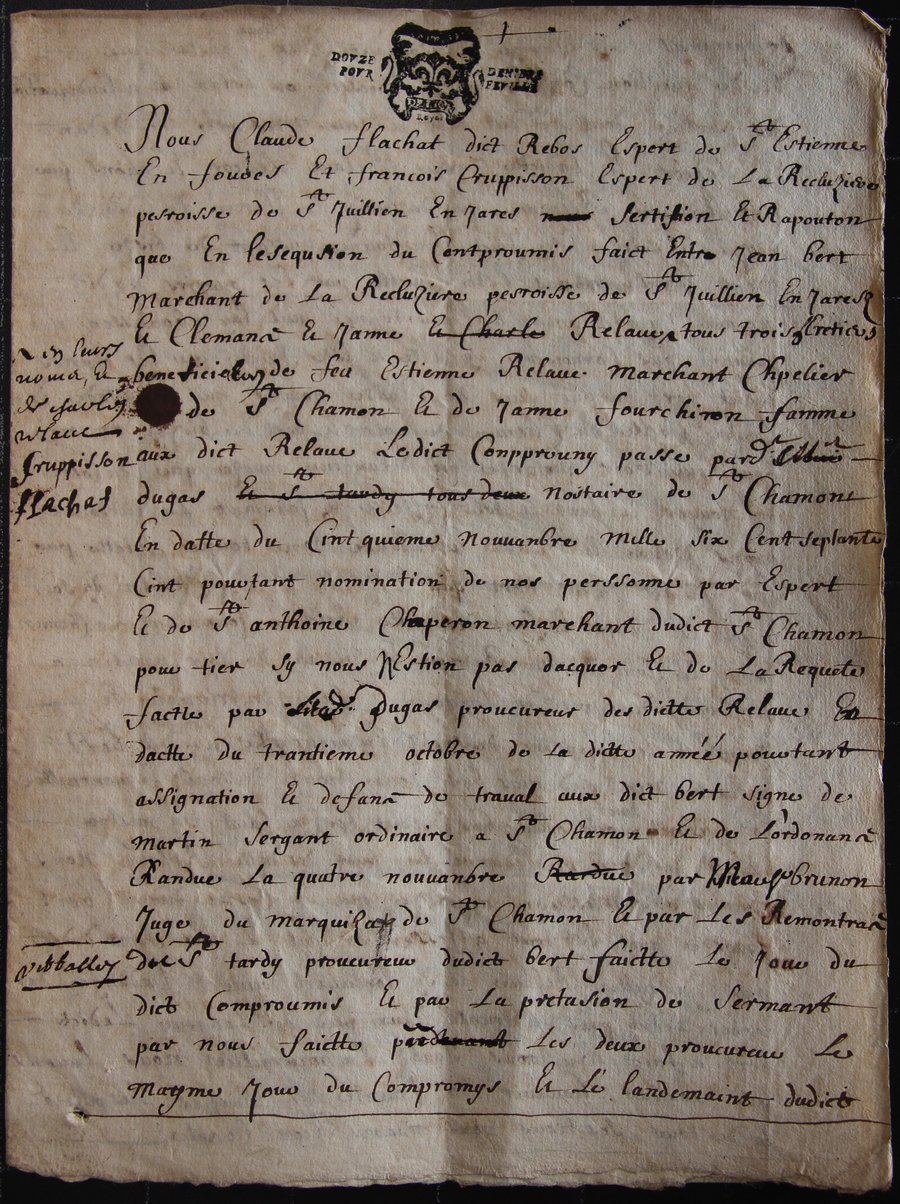 DOVZE DENIERS
POVR FEVILLE
Nous Claude flachat dict Rebos Espert de St Estienne
En foudes Et francois Cruppisson Espert de La Recluziere
pesroisse de St Juillien En Jares sertifion Et Rapouton
que En lesequsion du Contproumis faict Entre Jean bert
Marchant de La Recluziere pesroisse de St Juillien En Jares
Et Clemance Et Janne Et Charle Relave tous trois
beneficieres de feu Estienne Relave Marchant Chpelier
de St Chamon Et de Janne fourchiron famme
aux dict Relave Ledict Conpprouny passe pard
dugas Et St tardy tous deux nostaire de St Chamont
En datte du Cintquieme nouvanbre Mille six Cent septante
Cint pourtant nomination de nos perssonne par Espert
Et de St anthoine Chaperon marchant dudict St Chamon
pour tier sy nous nEstion pas dacquor Et de La Requete
factte par Dugas proucureur des ditte Relave En
dactte du trantieme octobre de La ditte année pourtant
assignation Et defance de traval aux dict bert signe de
Martin Sergant ordinaire a St Chamon Et de L'ordonance
Randue La quatre nouvanbre par brunon
Juge du marquiza de St Chamon Et par Les Remontrace
de St tardy proucureur dudict bert faictte Le Jour du
dict Comproumis Et par La prestasion de Sermant
par nous faictte Les deux proucureur Le
Mayme Jour du Compromys Et Le landemaint dudict
en leurs
noms, Et
de charles
relave
Cruppisson
flachat
verballes